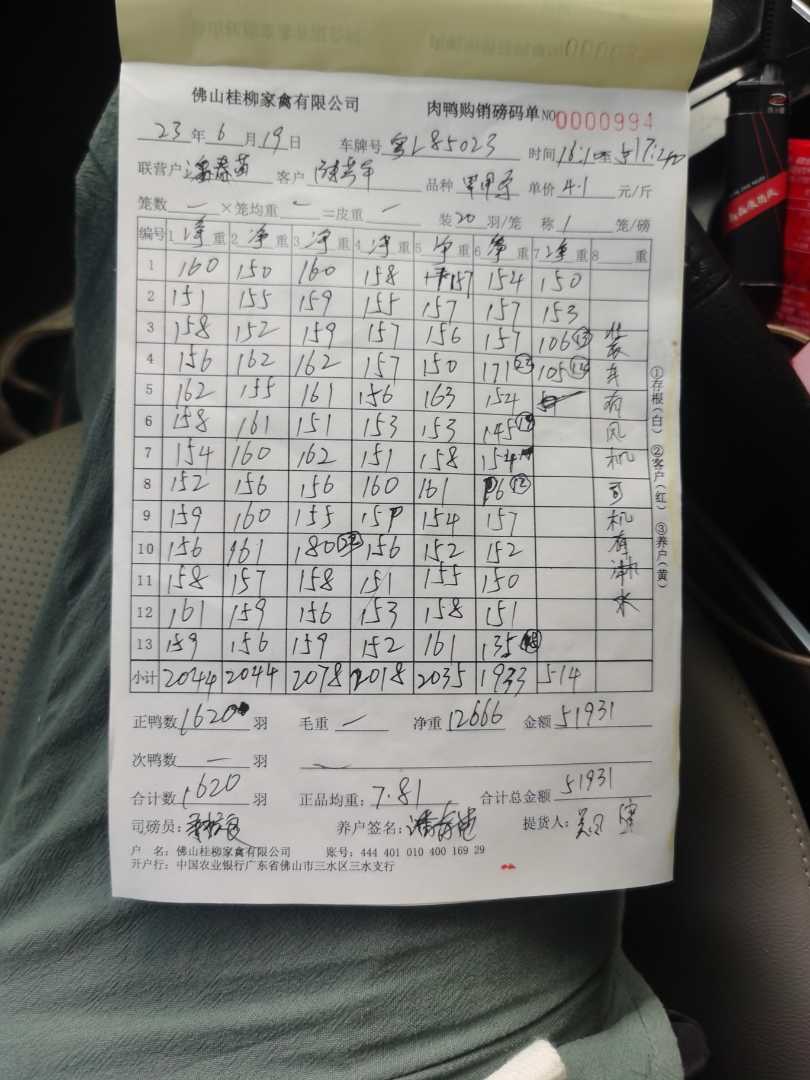 佛山桂柳家禽有限公司 肉鸭购销磅码单 NO 0000994
23年6月19日 车牌号 粤L85023 时间
联营户 客户 品种 单价 4.1 元/斤
笼数 一 ×笼均重 一 =皮重 一 装 20 羽/笼 称 1 笼/磅
编号 1 净重 2 净重 3 净重 4 净重 5 净重 6 净重 7 净重 8 重
1 160 150 160 158 157 154 150
2 151 155 159 155 157 157 153
3 158 152 159 157 156 157 106 ⑬
4 156 162 162 157 150 171 105
5 162 155 161 156 163 154
6 158 161 151 153 153 145
7 154 160 162 151 158 154
8 152 156 156 160 161 ⑫
9 159 160 155 154 157
10 156 161 180 156 152 152
11 158 157 158 151 155 150
12 161 159 156 153 158 151
13 159 156 159 152 161 135
小计 2044 2044 2078 2018 2035 1933 514
装车有风机司机有淋水
①存根(白) ②客户(红) ③养户(黄)
正鸭数 1620 羽 毛重 一 净重 12666 金额 51931
次鸭数 一 羽
合计数 1620 羽 正品均重: 7.81 合计总金额 51931
司磅员: 养户签名: 提货人:
户 名: 佛山桂柳家禽有限公司 账号: 444 401 010 400 169 29
开户行: 中国农业银行广东省佛山市三水区三水支行